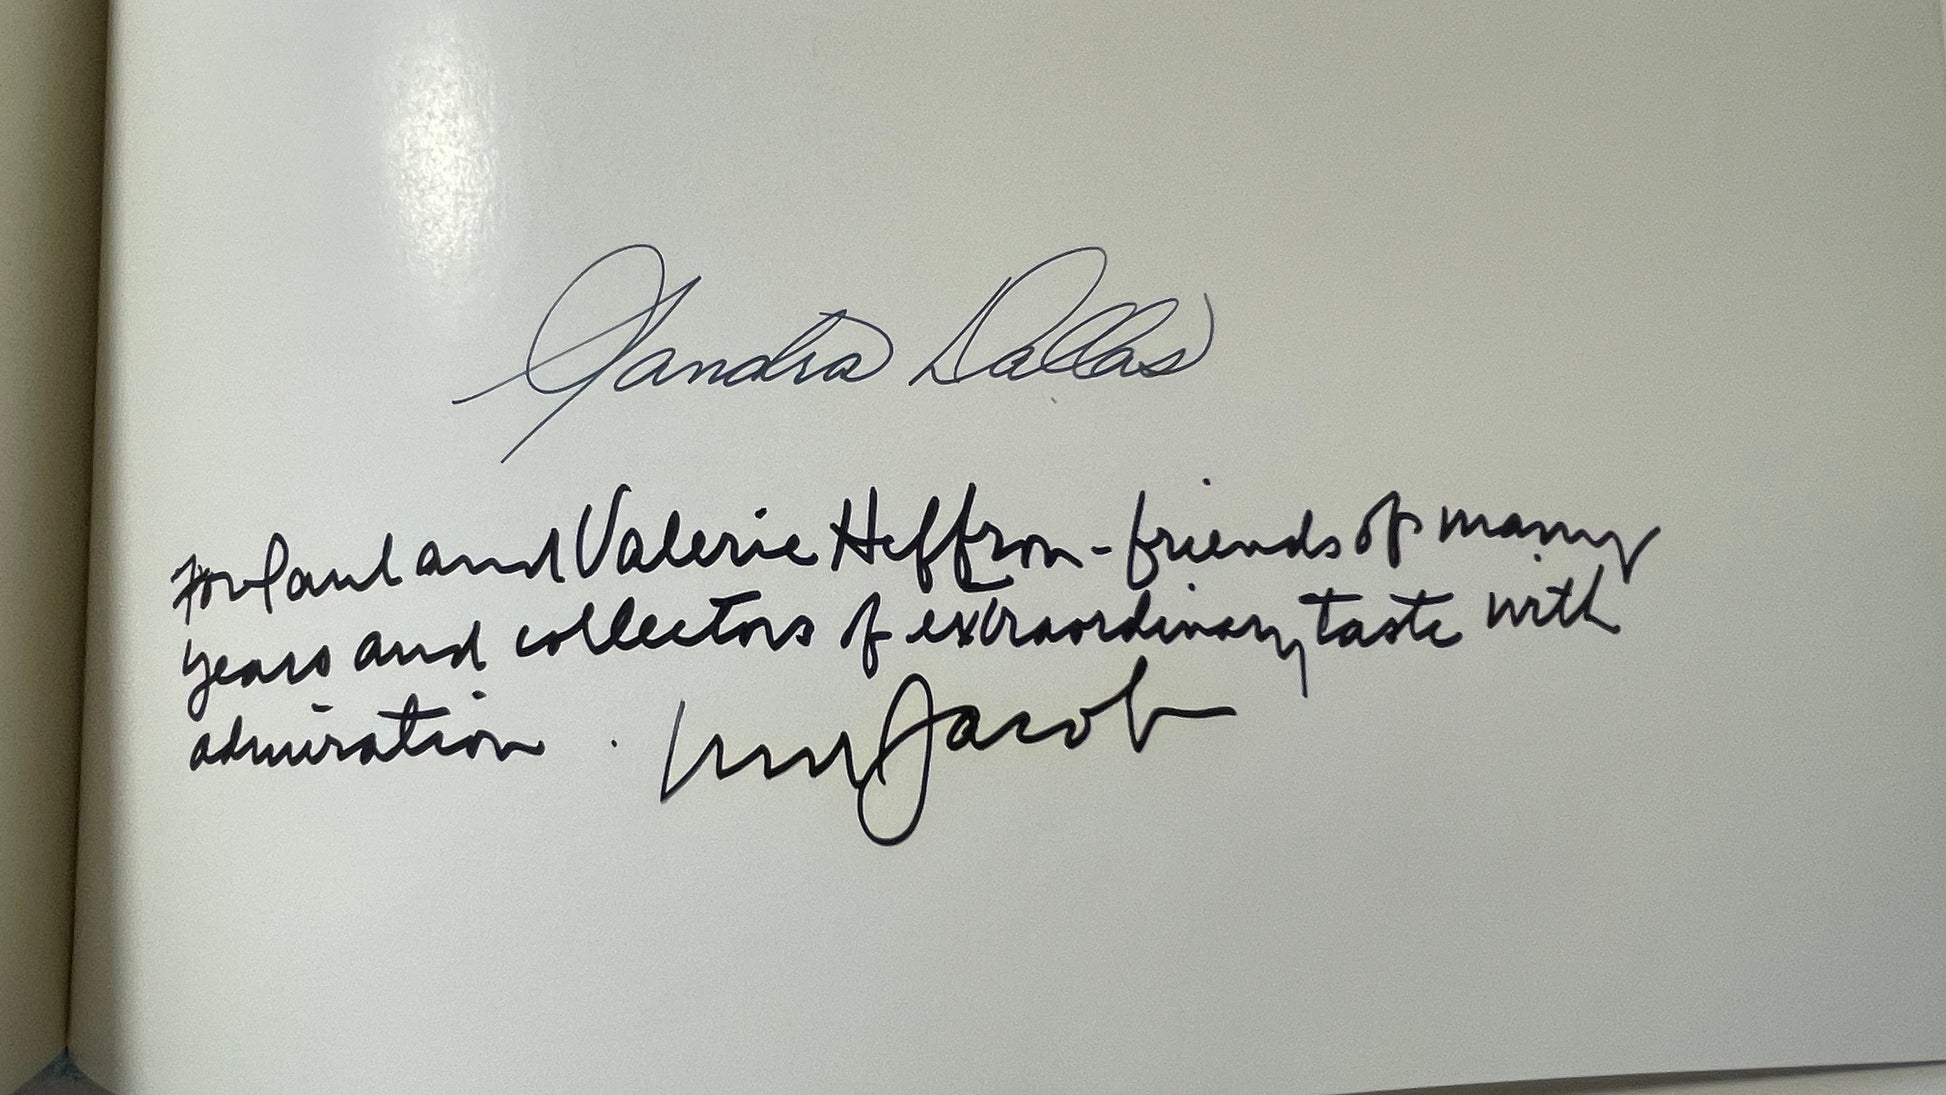 Sandra Dallas
For Paul and Valerie Heffron - friends of many
years and collectors of extraordinary taste with
admiration . Jacob